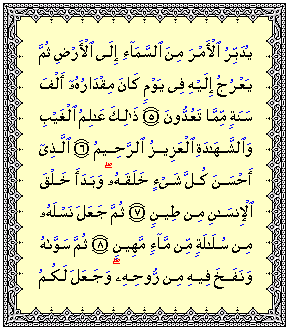 يُدَبِّرُ ٱلْأَمْرَ مِنَ ٱلسَّمَآءِ إِلَى ٱلْأَرْضِ ثُمَّ
يَعْرُجُ إِلَيْهِ فِى يَوْمٍ كَانَ مِقْدَارُهُۥٓ أَلْفَ
سَنَةٍ مِّمَّا تَعُدُّونَ ٥ ذَٰلِكَ عَٰلِمُ ٱلْغَيْبِ
وَٱلشَّهَٰدَةِ ٱلْعَزِيزُ ٱلرَّحِيمُ ٦ ٱلَّذِىٓ
أَحْسَنَ كُلَّ شَىْءٍ خَلَقَهُۥ وَبَدَأَ خَلْقَ
ٱلْإِنسَٰنِ مِن طِينٍ ٧ ثُمَّ جَعَلَ نَسْلَهُۥ
مِن سُلَٰلَةٍ مِّن مَّآءٍ مَّهِينٍ ٨ ثُمَّ سَوَّىٰهُ
وَنَفَخَ فِيهِ مِن رُّوحِهِۦ وَجَعَلَ لَكُمُ